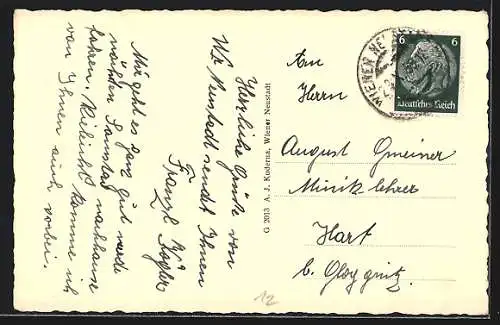 Herzliche Grüße von
Wr. Neustadt sendet Ihnen
Franzl Kagler
Mir geht es ganz gut werde
nächsten Samstag nachhause
fahren. Vieleicht komme ich
von Ihnen auch vorbei.
G 2013 A. J. Kuderna, Wiener Neustadt
6 6
Deutsches Reich
WIENER NEU
An
Herrn
August Gmeiner
Musiklehrer
Hart
b. Gloggnitz
12